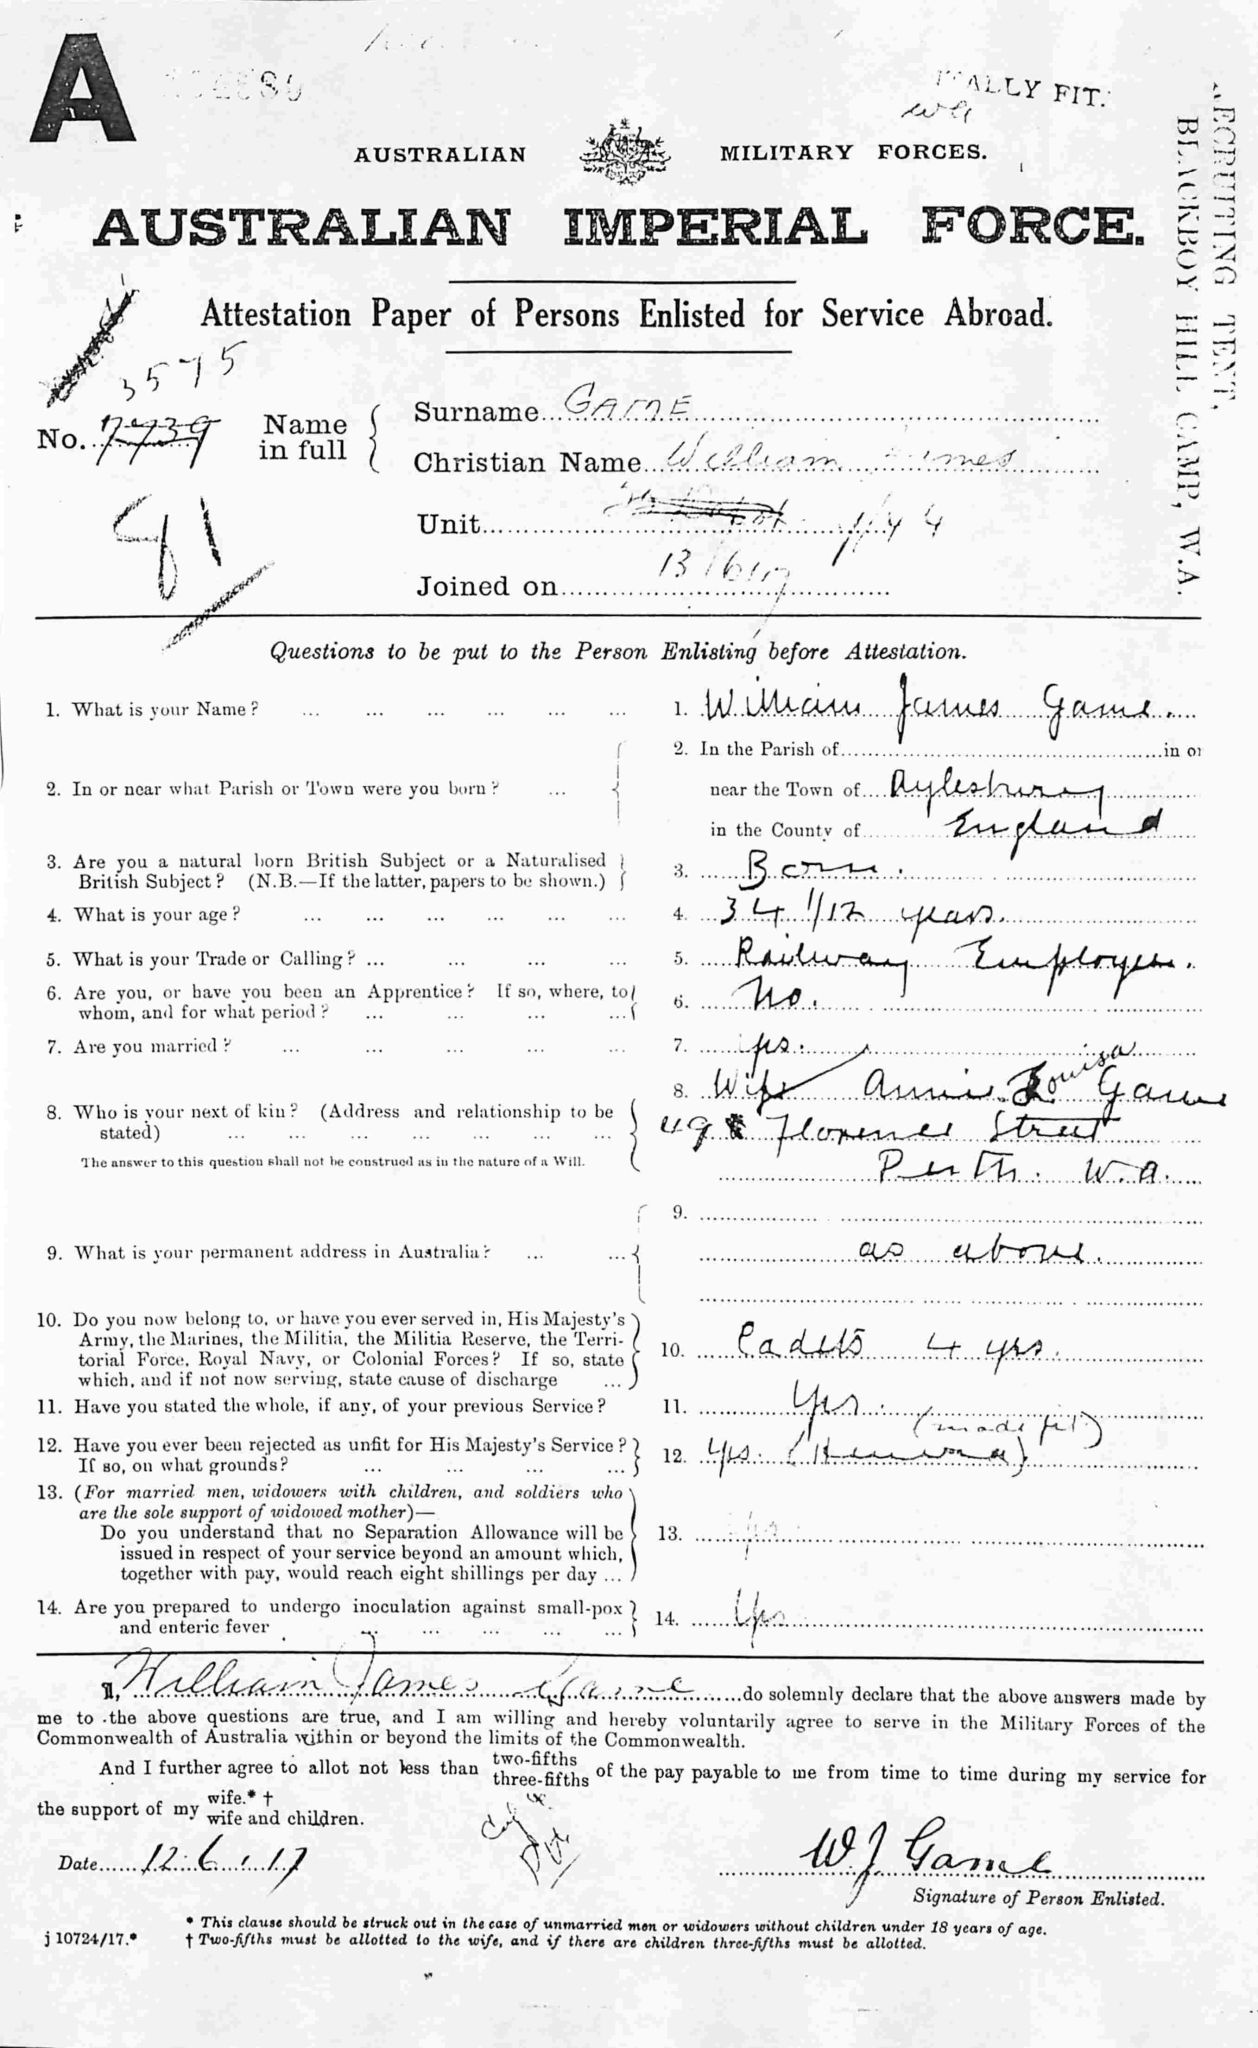 A
TALLY FIT.
AUSTRALIAN MILITARY FORCES.
RECRUITING TENT,
BLACKBOY HILL CAMP, W.A.
AUSTRALIAN IMPERIAL FORCE.
Attestation Paper of Persons Enlisted for Service Abroad.
3575
No. 7739
81
Name in full
Surname GAME
Christian Name William James
Unit
Joined on 13/6/17
Questions to be put to the Person Enlisting before Attestation.
1. What is your Name? ... ... ... ... ... ... 1. William James Game.
2. In or near what Parish or Town were you born? ... 2. In the Parish of in or
near the Town of Aylesbury
in the County of England
3. Are you a natural born British Subject or a Naturalised
British Subject? (N.B.—If the latter, papers to be shown.) 3. Born.
4. What is your age? ... ... ... ... ... ... 4. 34 1/12 years.
5. What is your Trade or Calling? ... ... ... ... 5. Railway Employee.
6. Are you, or have you been an Apprentice? If so, where, to
whom, and for what period? ... ... ... ... 6. No.
7. Are you married? ... ... ... ... ... 7. yes.
8. Who is your next of kin? (Address and relationship to be
stated) ... ... ... ... ... ... ...
The answer to this question shall not be construed as in the nature of a Will.
8. Wife Annie Louisa Game
49 Florence Street
Perth. W.A.
9. What is your permanent address in Australia? ... ... 9.
as above.
10. Do you now belong to, or have you ever served in, His Majesty's
Army, the Marines, the Militia, the Militia Reserve, the Terri-
torial Force, Royal Navy, or Colonial Forces? If so, state
which, and if not now serving, state cause of discharge ...
10. Cadets 4 yrs.
11. Have you stated the whole, if any, of your previous Service? 11. Yes.
12. Have you ever been rejected as unfit for His Majesty's Service?
If so, on what grounds? ... ... ... ...
(made fit)
12. Yes. (Hernia)
13. (For married men, widowers with children, and soldiers who
are the sole support of widowed mother)—
Do you understand that no Separation Allowance will be
issued in respect of your service beyond an amount which,
together with pay, would reach eight shillings per day ...
13. Yes
14. Are you prepared to undergo inoculation against small-pox
and enteric fever ... ... ... ... ...
14. Yes
I, William James Game do solemnly declare that the above answers made by
me to the above questions are true, and I am willing and hereby voluntarily agree to serve in the Military Forces of the
Commonwealth of Australia within or beyond the limits of the Commonwealth.
And I further agree to allot not less than two-fifths three-fifths of the pay payable to me from time to time during my service for
the support of my wife.*† wife and children.
Date 12.6.17
W J Game
Signature of Person Enlisted.
* This clause should be struck out in the case of unmarried men or widowers without children under 18 years of age.
j 10724/17.* † Two-fifths must be allotted to the wife, and if there are children three-fifths must be allotted.